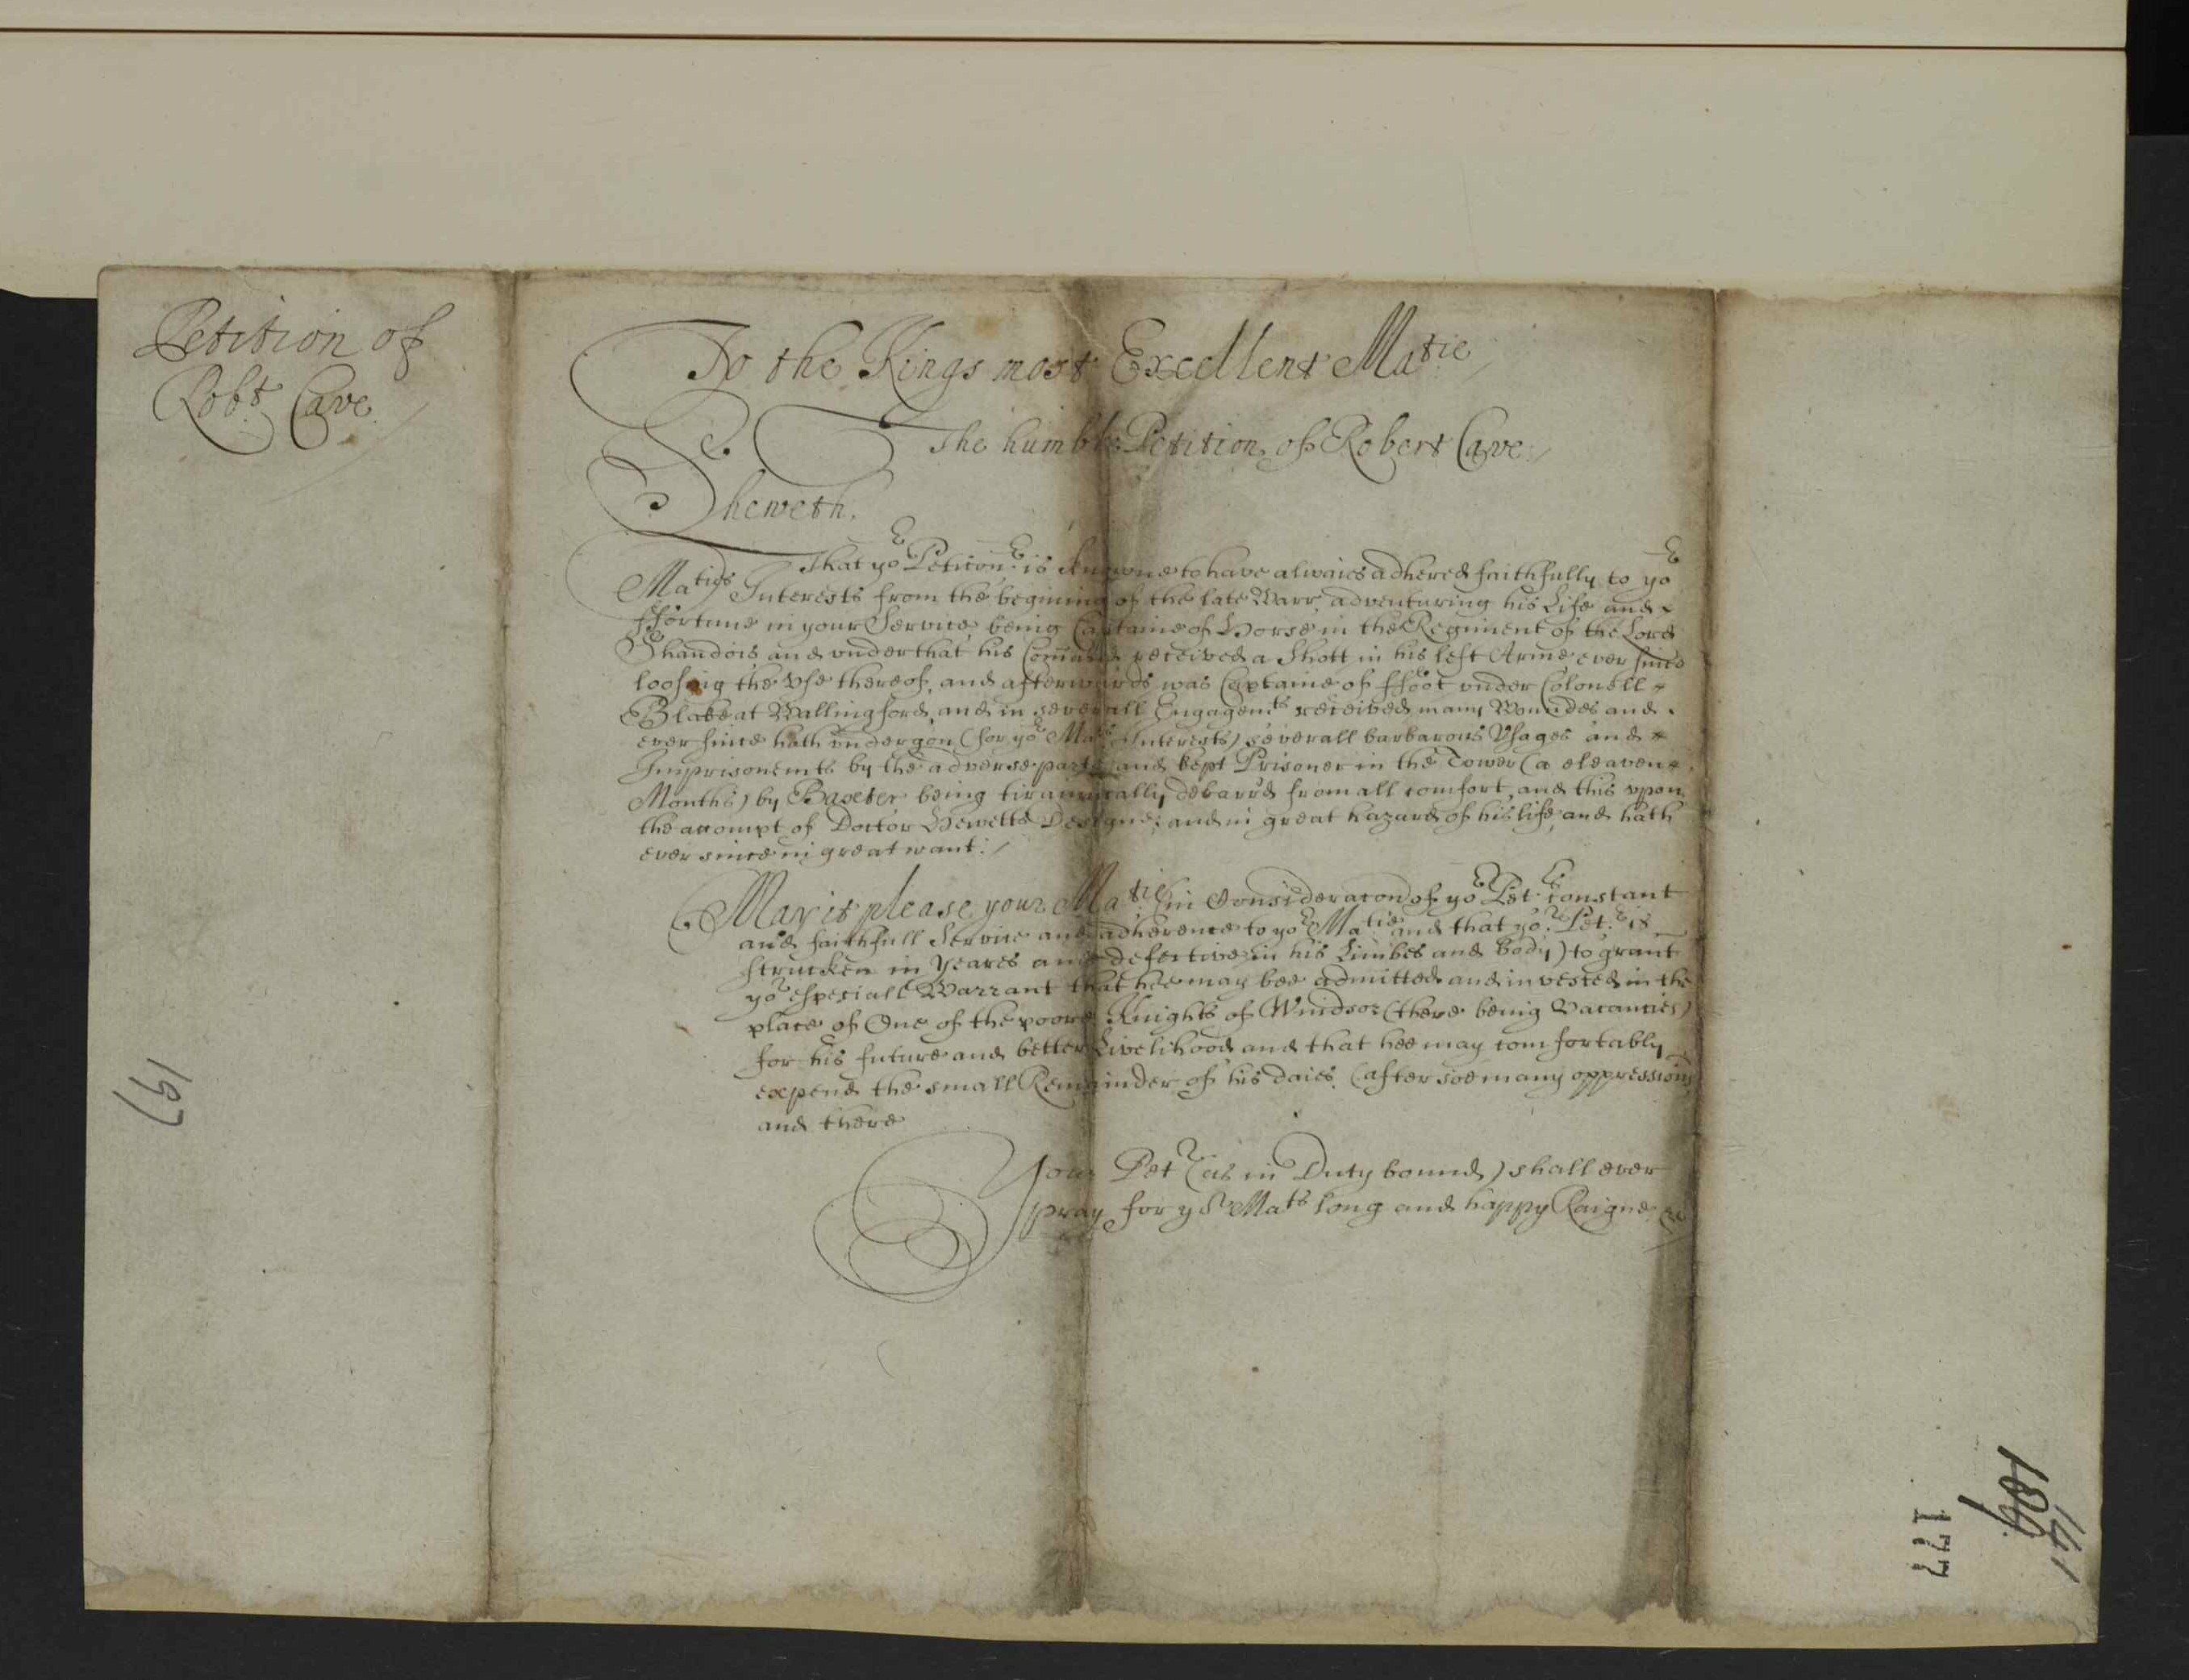 Petition of
Robt. Cave
To the Kings most Excellent Matie
The humble Petition of Robert Cave
Sheweth.
That yor Peticonr. is knowne to have alwaies adhered faithfully to yor
Maties Interests from the begining of the late Warr, adventuring his Life and
ffortune in your Service, being Captaine of Horse in the Regiment of the Lord
Shandois and vnder that his Comand received a Shott in his left Arme ever since
loosing the vse thereof, and afterwards was Captaine of ffoot vnder Colonell
Blake at Wallingford, and in severall Engagemts received many Woundes and
ever since hath vndergon (for yor Maties Interests) severall barbarous Vsages and
Imprisonemts by the adverse party and kept Prisoner in the Tower (a eleaven
Months) by Baxter being tiranically debarr'd from all comfort, and this vpon
the accompt of Doctor Hewetts Designe; and in great hazard of his life, and hath
ever since in great want:/
May it please your Matie (in Consideracon of yor Petrs constant
and faithfull Service and adherence to yor Matie and that yor. Petr. is
strucken in Yeares and defective in his Limbes and body) to grant
yor especiall Warrant that hee may bee admitted and invested in the
place of One of the poore Knights of Windsor (there being Vacancies)
for his future and better Livelihood and that hee may comfortably
expend the small Remainder of his daies. (after soe many oppressions
and there
Your Petr (as in Duty bound) shall ever
pray for yor Mats long and happy Raigne &c
197
177